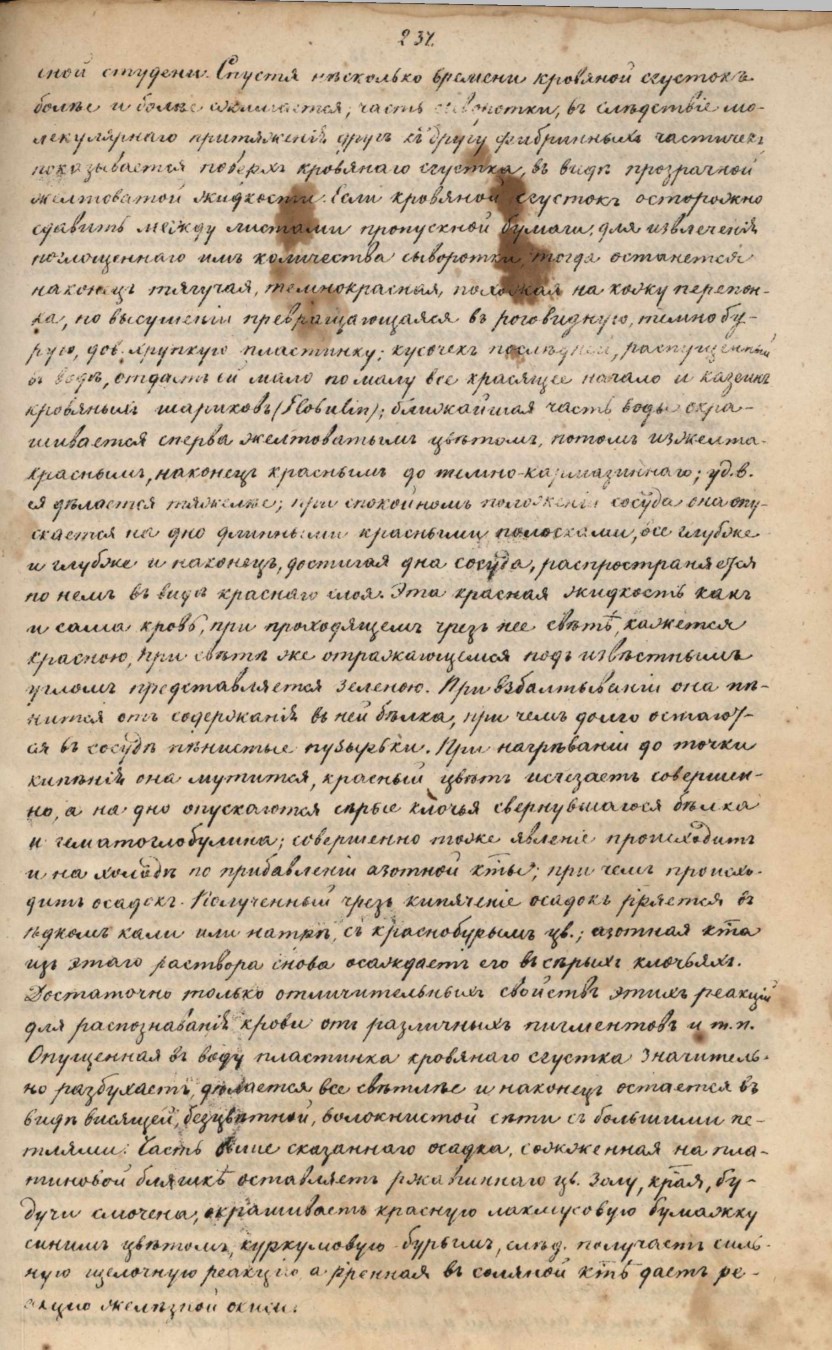 237.
сной студени. Спустя нѣсколько времени кровяной сгустокъ
болѣе и болѣе сжимается, часть сыворотки, въ слѣдствіе мо-
лекулярнаго притяженія другъ къ другу фибринныхъ частичекъ
показывается поверхъ кровянаго сгустка, въ видѣ прозрачной
желтоватой жидкости. Если кровяной сгустокъ осторожно
сдавить между листами пропускной бумаги, для извлеченія
поглощеннаго имъ количества сыворотки, тогда останется
наконецъ тягучая, темнокрасная, похожая на кожу перепон-
ка, по высушеніи превращающаяся въ роговидную, темнобу-
рую, дов. хрупкую пластинку; кусочекъ послѣдней, распущенный
въ водѣ, отдаетъ ей мало по малу все красящее начало и казеинъ
кровяныхъ шариковъ (Globulin); ближайшая часть воды окра-
шивается сперва желтоватымъ цвѣтомъ, потомъ изжелта-
краснымъ, наконецъ краснымъ до темно-кармазиннаго; уд. в.
ея дѣлается тяжелѣе; при спокойномъ положеніи сосуда она опу-
скается на дно длинными красными полосками, все глубже
и глубже и наконецъ, достигая дна сосуда, распространяется
по немъ въ видѣ краснаго слоя. Эта красная жидкость какъ
и сама кровь, при проходящемъ чрезъ нее свѣтѣ, кажется
красною, при свѣтѣ же отражающемся подъ извѣстнымъ
угломъ представляется зеленою. При взбалтываніи она пѣ-
нится отъ содержанія въ ней бѣлка, при чемъ долго остаю-
ся въ сосудѣ пѣнистые пузырьки. При нагрѣваніи до точки
кипѣнія она мутится, красный цвѣтъ исчезаетъ совершен-
но, а на дно опускаются сѣрые клочья свернувшагося бѣлка
и гематоглобулина; совершенно тоже явленіе происходитъ
и на холодѣ по прибавленіи азотной кты; при чемъ происхо-
дитъ осадокъ. Полученный чрезъ кипяченіе осадокъ рряется въ
ѣдкомъ кали или натрѣ, съ краснобурымъ цв.; азотная кта
изъ этаго раствора снова осаждаетъ его въ сѣрыхъ клочьяхъ.
Достаточно только отличительныхъ свойствъ этихъ реакцій
для распознаванія крови отъ различныхъ пигментовъ и т. п.
Опущенная въ воду пластинка кровянаго сгустка значитель-
но разбухаетъ, дѣлается все свѣтлѣе и наконецъ остается въ
видѣ висящей, безцвѣтной, волокнистой сѣти съ большими пе-
тлями. Часть выше сказаннаго осадка, сожженная на пла-
тиновой бляшкѣ оставляетъ ржавиннаго цв. золу, края, бу-
дучи смочена, окрашиваетъ красную лакмусовую бумажку
синимъ цвѣтомъ, куркумовую бурымъ, слѣд. получаетъ силь-
ную щелочную реакцію а рренная въ соляной ктѣ даетъ ре-
акцію желѣзной окиси.